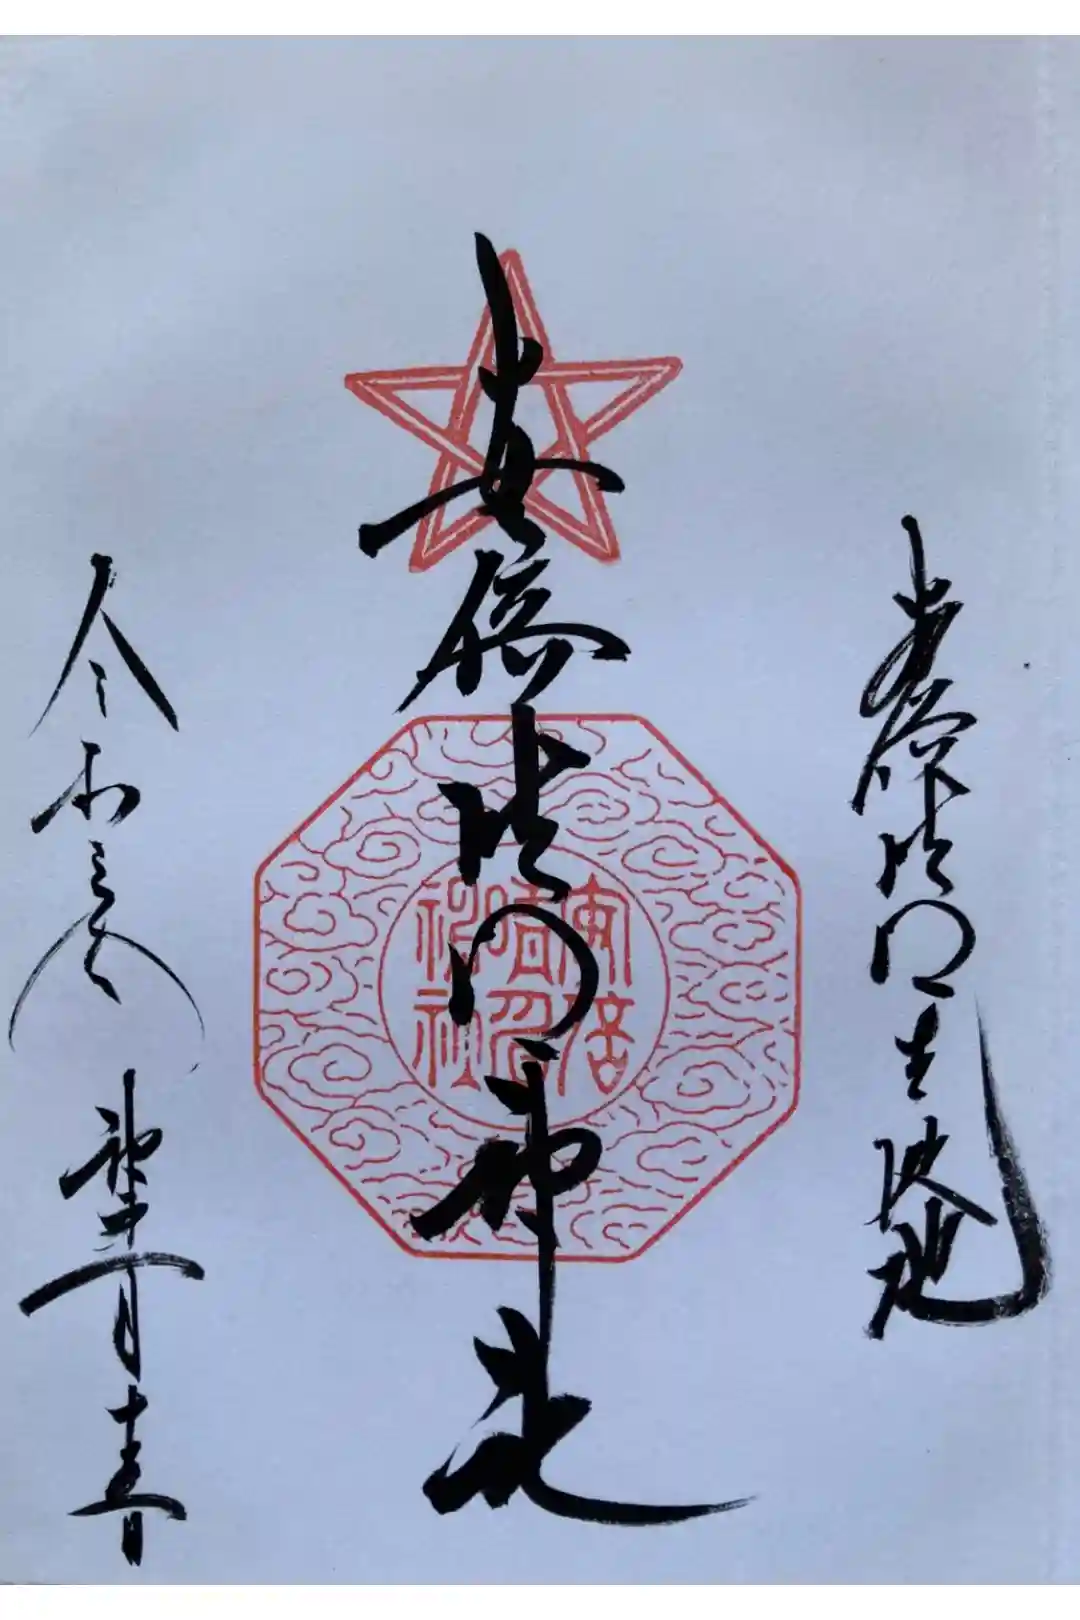 安倍晴明生誕地
安倍晴明神社
安倍
晴明
神社
令和三年 月十五日